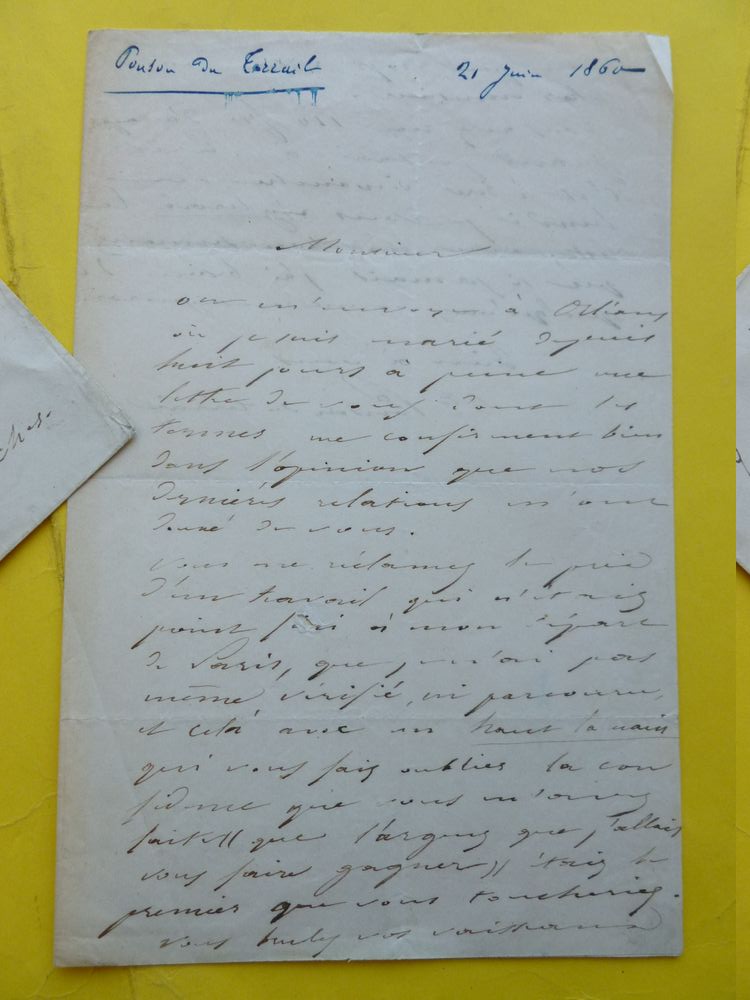 Ponson du Terrail 21 Juin 1860
Monsieur
on m'envoye à Orléans
où je suis marié depuis
huit jours à peine une
lettre de vous dont les
termes me confirment bien
dans l'opinion que nos
dernières relations m'ont
donné de vous.
vous me réclamez le prix
d'un travail qui n'étais
point fini à mon départ
de Paris, que je n'ai pas
même vérifié, ni parcouru,
et celà avec un haut la main
qui vous fais oublier la con
fidence que vous m'aviez
faite (( que l'argent que j'allais
vous faire gagner )) étais le
premier que vous toucheriez.
vous vos